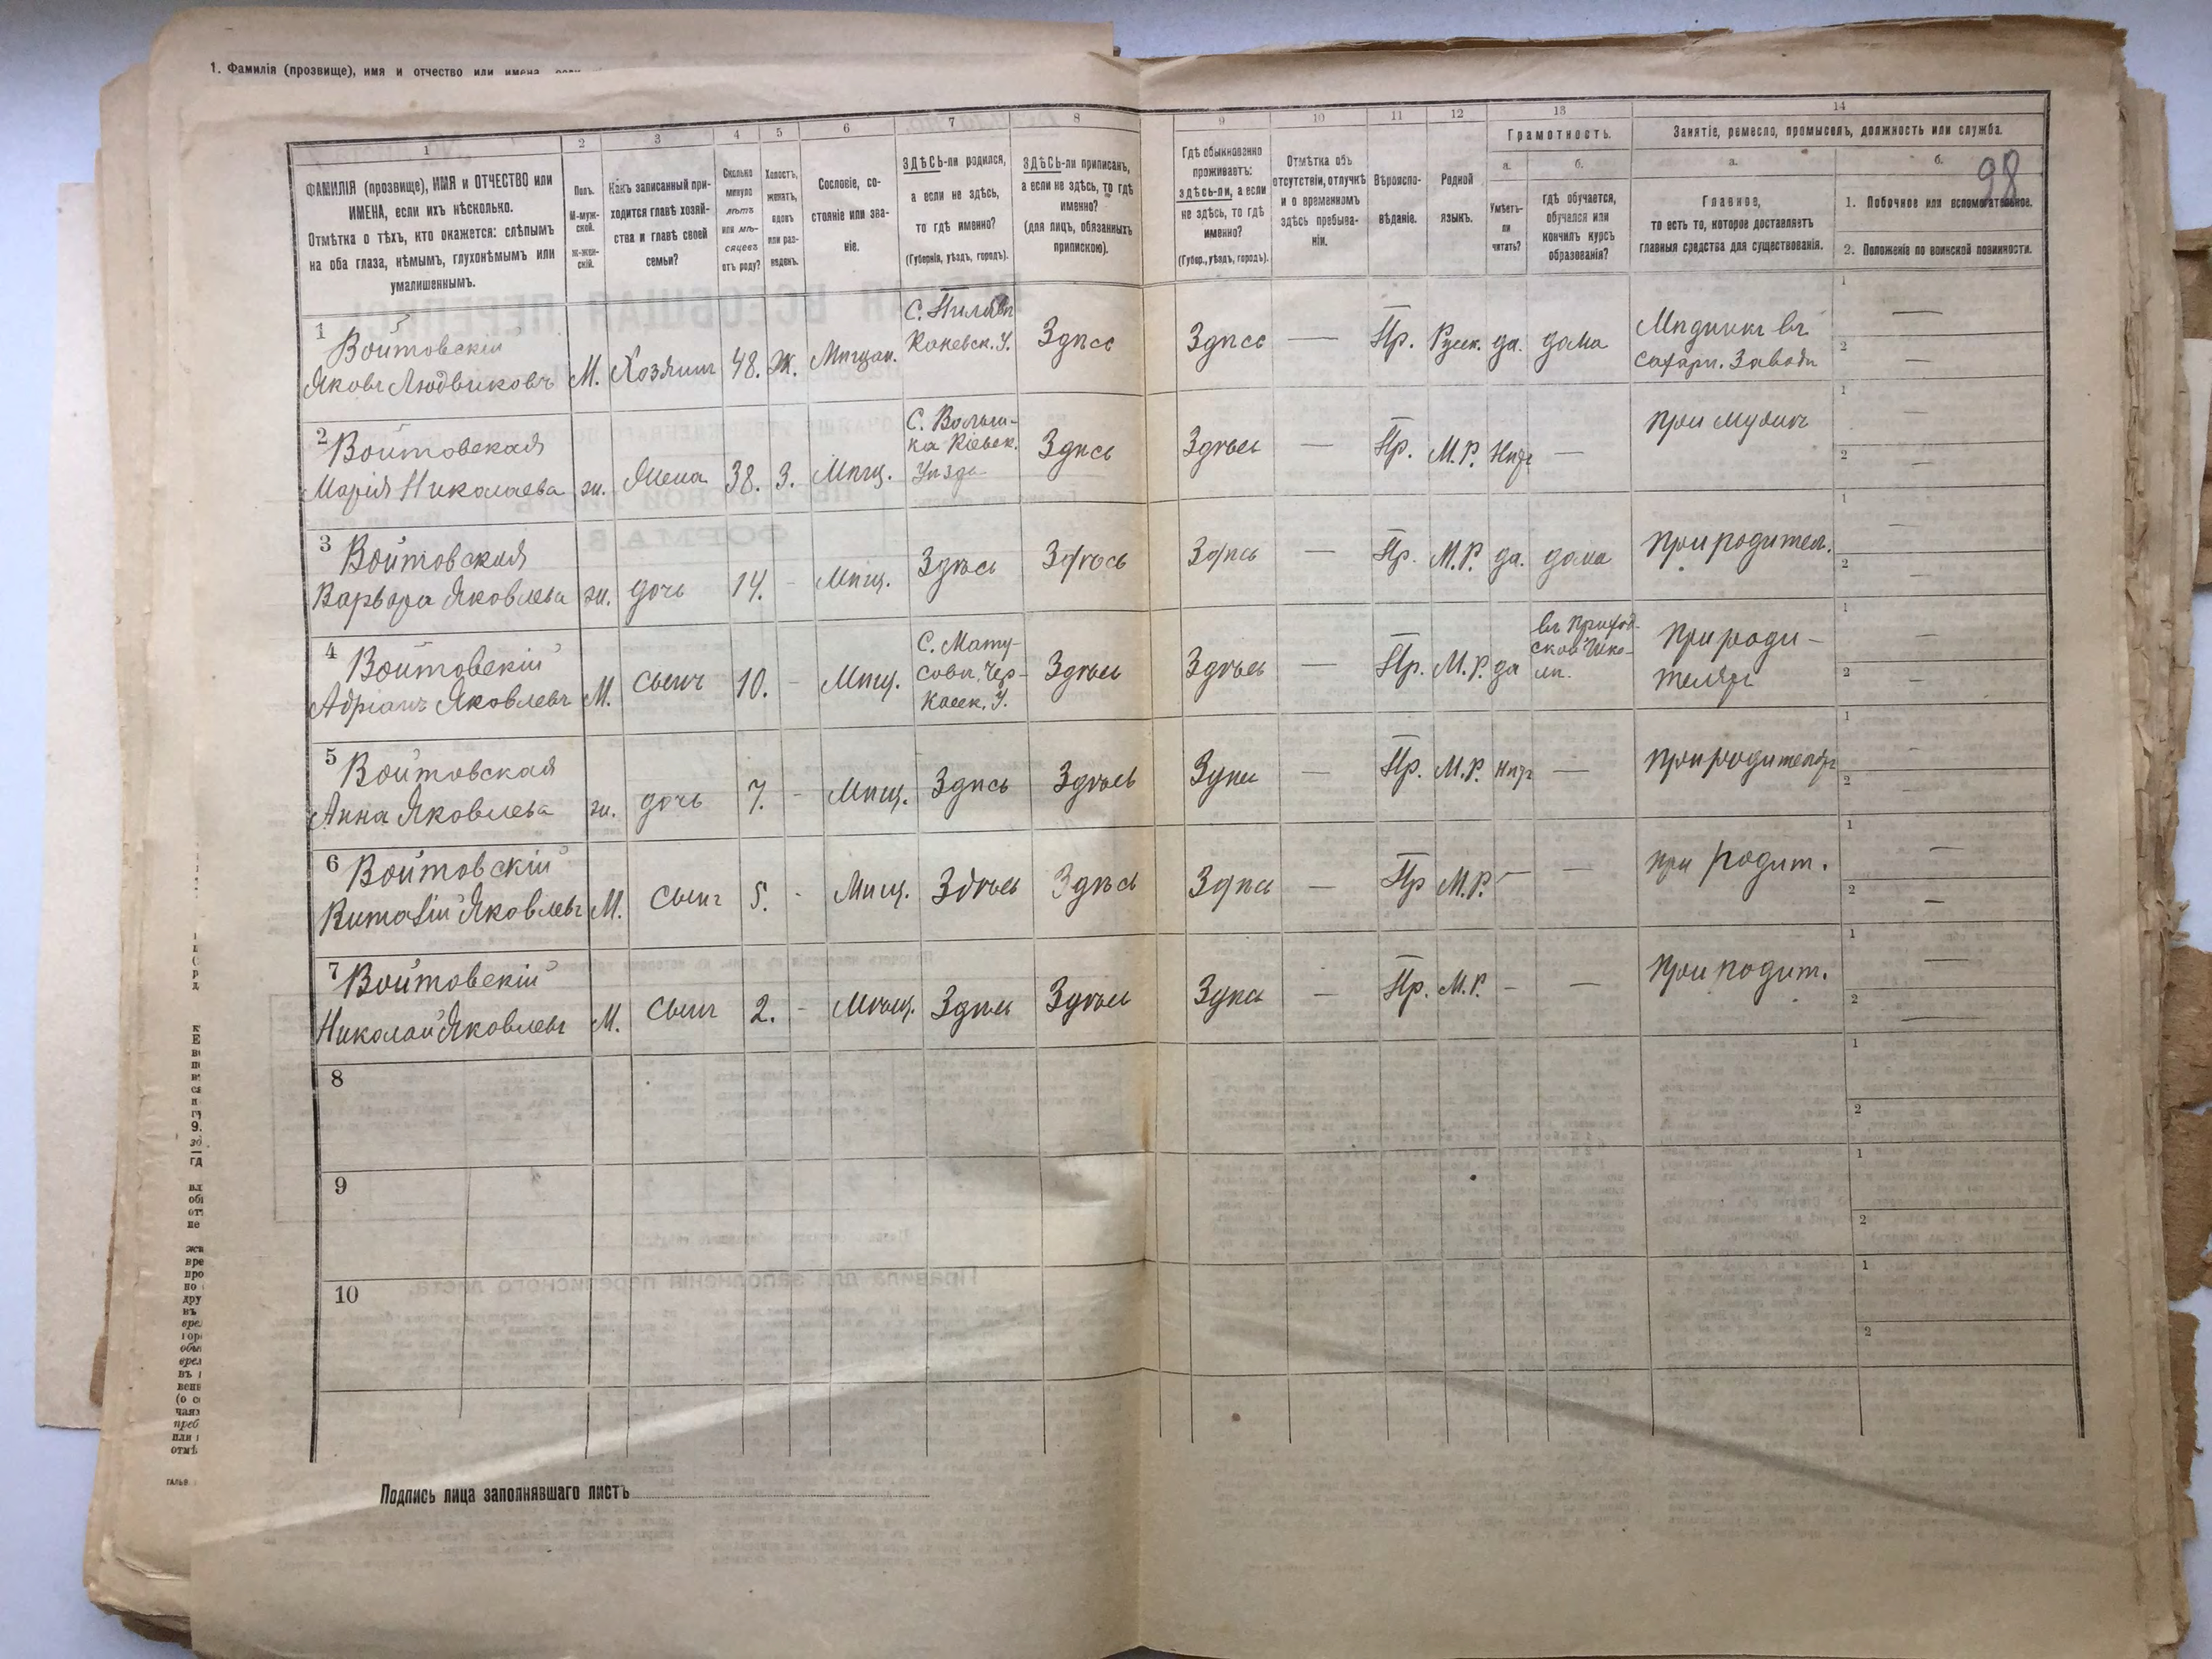 1. Фамилія (прозвище), имя и отчество или имена
98
1
ФАМИЛІЯ (прозвище), ИМЯ и ОТЧЕСТВО или
ИМЕНА, если ихъ нѣсколько.
Отмѣтка о тѣхъ, кто окажется: слѣпымъ
на оба глаза, нѣмымъ, глухонѣмымъ или
умалишеннымъ.
2
Полъ.
М-муж-
ской.
Ж-жен-
скій.
3
Какъ записанный при-
ходится главѣ хозяй-
ства и главѣ своей
семьи?
4
Сколько
минуло
лѣтъ
или мѣ-
сяцевъ
отъ роду?
5
Холостъ,
женатъ,
вдовъ
или раз-
веденъ.
6
Сословіе, со-
стояніе или зва-
ніе.
7
ЗДѢСЬ-ли родился,
а если не здѣсь,
то гдѣ именно?
(Губернія, уѣздъ, городъ).
8
ЗДѢСЬ-ли приписанъ,
а если не здѣсь, то гдѣ
именно?
(для лицъ, обязанныхъ
припискою).
9
Гдѣ обыкновенно
проживаетъ:
здѣсь-ли, а если
не здѣсь, то гдѣ
именно?
(Губер., уѣздъ, городъ).
10
Отмѣтка объ
отсутствіи, отлучкѣ
и о временномъ
здѣсь пребыва-
ніи.
11
Вѣроиспо-
вѣданіе.
12
Родной
языкъ.
13
Грамотность.
а.
Умѣетъ-
ли
читать?
б.
гдѣ обучается,
обучался или
кончилъ курсъ
образованія?
14
Занятіе, ремесло, промыселъ, должность или служба.
а.
Главное,
то есть то, которое доставляетъ
главныя средства для существованія.
б.
1. Побочное или вспомогательное.
2. Положеніе по воинской повинности.
1
Войтовскій
Яковъ Людвиковъ
М.
Хозяинъ
48.
Ж.
Мѣщан.
Каневск. У.
Здѣсь
Здѣсь
—
Пр.
Русск.
да.
дома
Мѣдникъ въ
сахарн. Заводѣ
1
—
2
—
2
Войтовская
Марія Николаева
ж.
Жена
38.
З.
Мѣщ.
Кіевск.
Уѣзда
Здѣсь
Здѣсь
—
Пр.
М.Р.
Нѣт
—
При мужѣ
1
—
2
—
3
Войтовская
Варвара Яковлева
ж.
дочь
14.
-
Мѣщ.
Здѣсь
Здѣсь
Здѣсь
—
Пр.
М.Р.
да.
дома
При родител.
1
—
2
—
4
Войтовскій
Адріанъ Яковлевъ
М.
сынъ
10.
-
Мѣщ.
С. Мату-
совъ, Чер-
касск. У.
Здѣсь
Здѣсь
—
Пр.
М.Р.
да
въ приход-
ской Шко-
лѣ.
При роди-
теляхъ
1
—
2
—
5
Войтовская
Анна Яковлева
ж.
дочь
7.
-
Мѣщ.
Здѣсь
Здѣсь
Здѣсь
—
Пр.
М.Р.
Нѣт
—
При родителях
1
—
2
—
6
Войтовскій
Виталій Яковлевъ
М.
Сынъ
5.
-
Мѣщ.
Здѣсь
Здѣсь
Здѣсь
—
Пр
М.Р.
—
—
при родит.
1
—
2
—
7
Войтовскій
Николай Яковлевъ
М.
Сынъ
2.
-
Мѣщ.
Здѣсь
Здѣсь
Здѣсь
—
Пр.
М.Р.
-
—
При родит.
1
—
2
—
8
1
2
9
1
2
10
1
2
Подпись лица заполнявшаго листъ